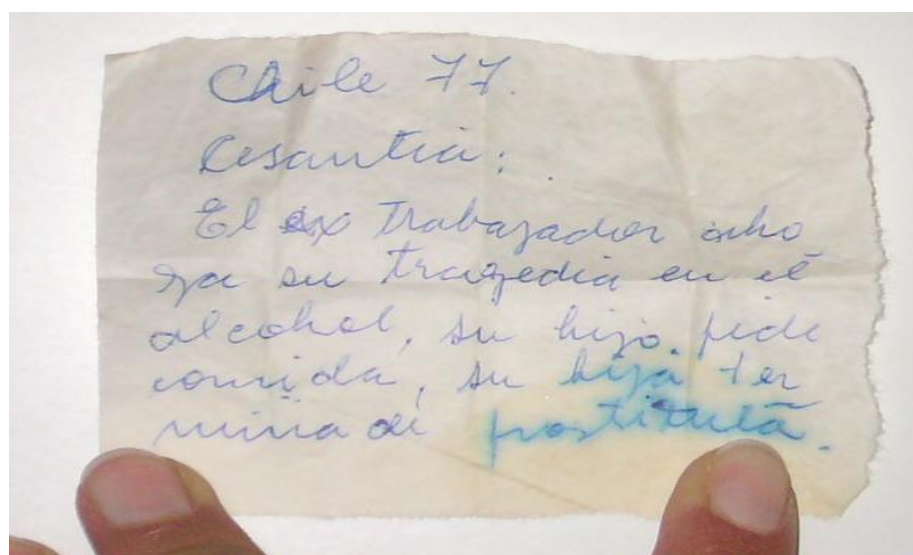 Chile 77.
Cesantia:
El ex trabajador aho
ga su tragedia en el
alcohol, su hijo pide
comida, su hija ter
mina de prostituta.